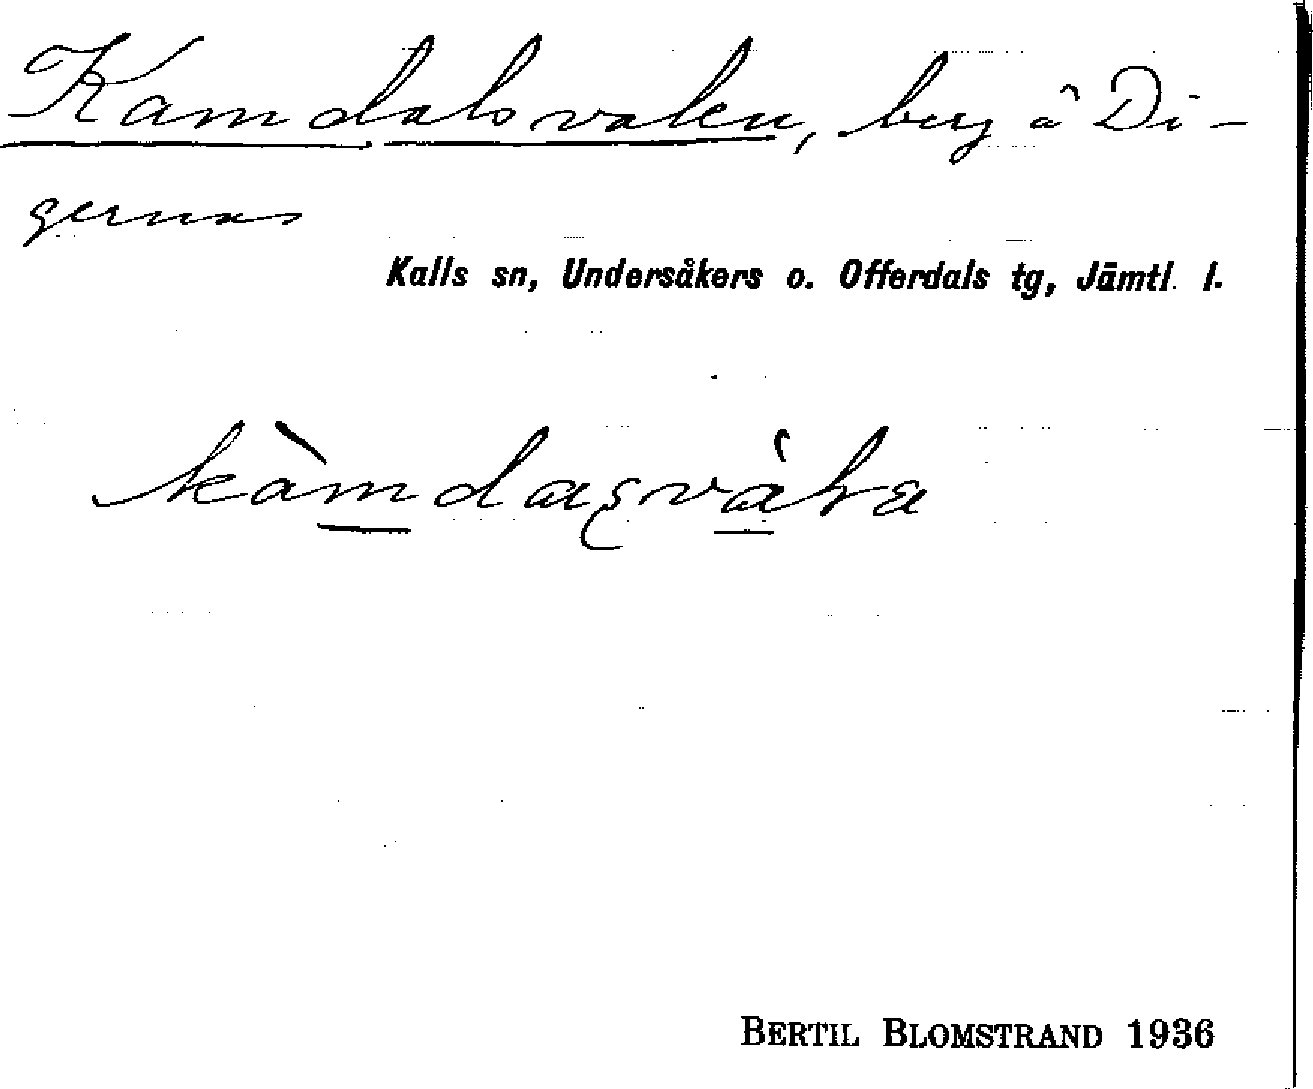 Kamdalsvalen, berg å Di-
gernäs
Kalls sn, Undersåkers o. Offerdals tg, Jämtl. l.
BERTIL BLOMSTRAND 1936